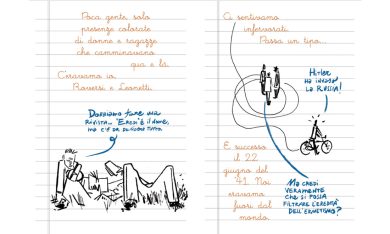 Poca gente, solo
presenze colorate
di donne e ragazze
che camminavano
qua e là.
C'eravamo io,
Roversi e Leonetti.
Dobbiamo fare una
rivista... "Eredi" è il nome,
ma c'è da
Ci sentivamo
infervorati.
Passa un tipo...
Hitler
ha invaso
la Russia!
È successo
il 22
giugno del
'41. Noi
eravamo
fuori dal
mondo.
Ma credi
veramente
che si possa
filtrare l'eredità
dell'ermetismo?